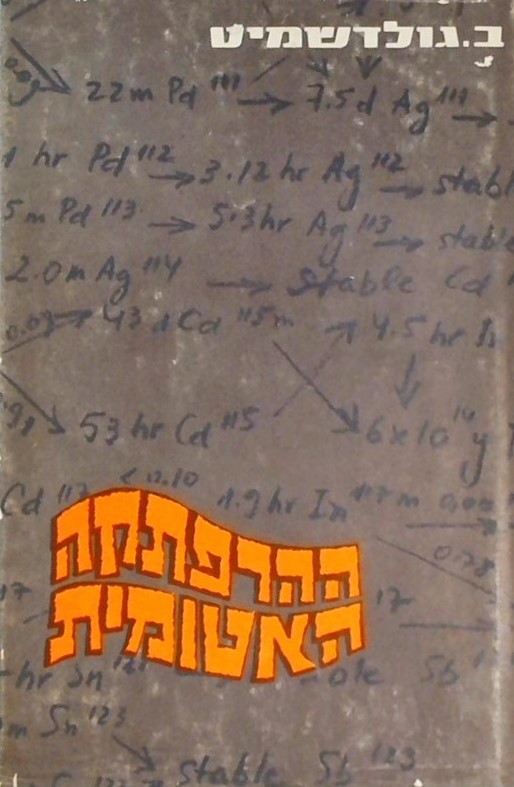 ב.גולדשמיט
22m Pd 111 → 7.5d Ag 111 →
1 hr Pd 112 → 3.12 hr Ag 112 → stabl
5m Pd 113 → 5.3hr Ag 113 → stable
2.0m Ag 114 → Stable Cd
0.09 → 43 d Cd 115m 4.5 hr In
53 hr Cd 115 6x10 14 y
Cd 117 < 0.10 1.9 hr In 117m
ההרפתקה
0.28
האטומית
17
hr Sn 121 Sb
m Sn 123
stable Sb 123